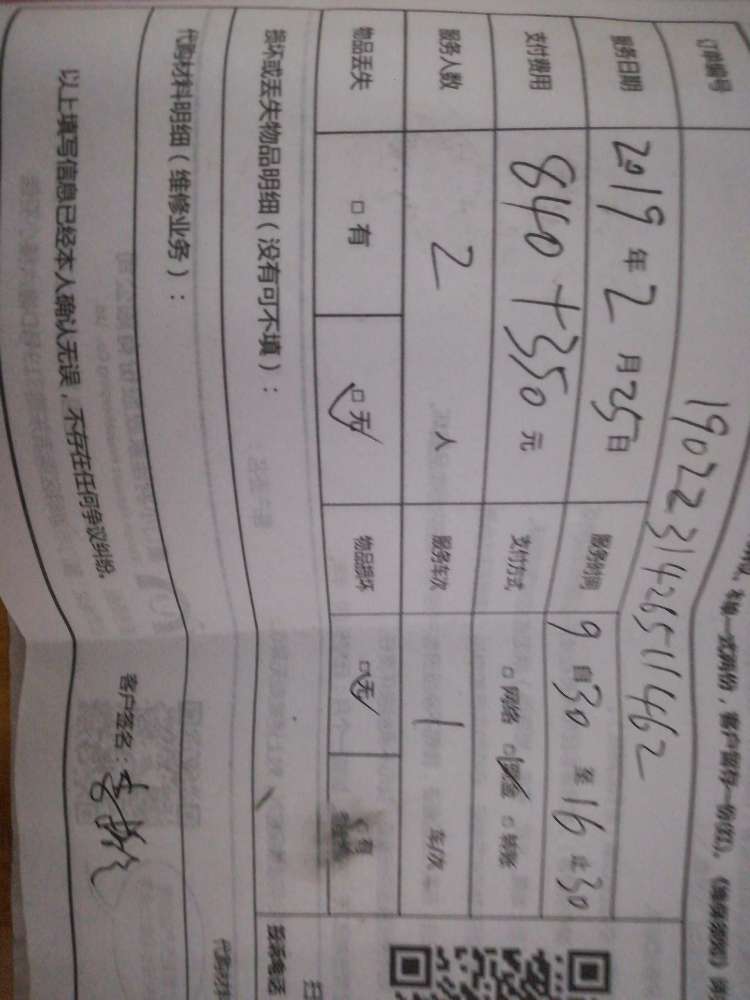 一式两份，客户留存一份(红)。
订单编号 1902231426511462
服务日期 2019 年 2 月 25 日 服务时间 9 自 30 至 16 止 30
支付费用 840+350 元 支付方式 □ 网络 □ 现金 □ 转账
服务人数 2 人 服务车次 1 车次
物品丢失 □ 有 □ 无 物品损坏 □ 无 □ 有
损坏或丢失物品明细（没有可不填）：
代购材料明细（维修业务）：
以上填写信息已经本人确认无误，不存在任何争议纠纷。
客户签名：